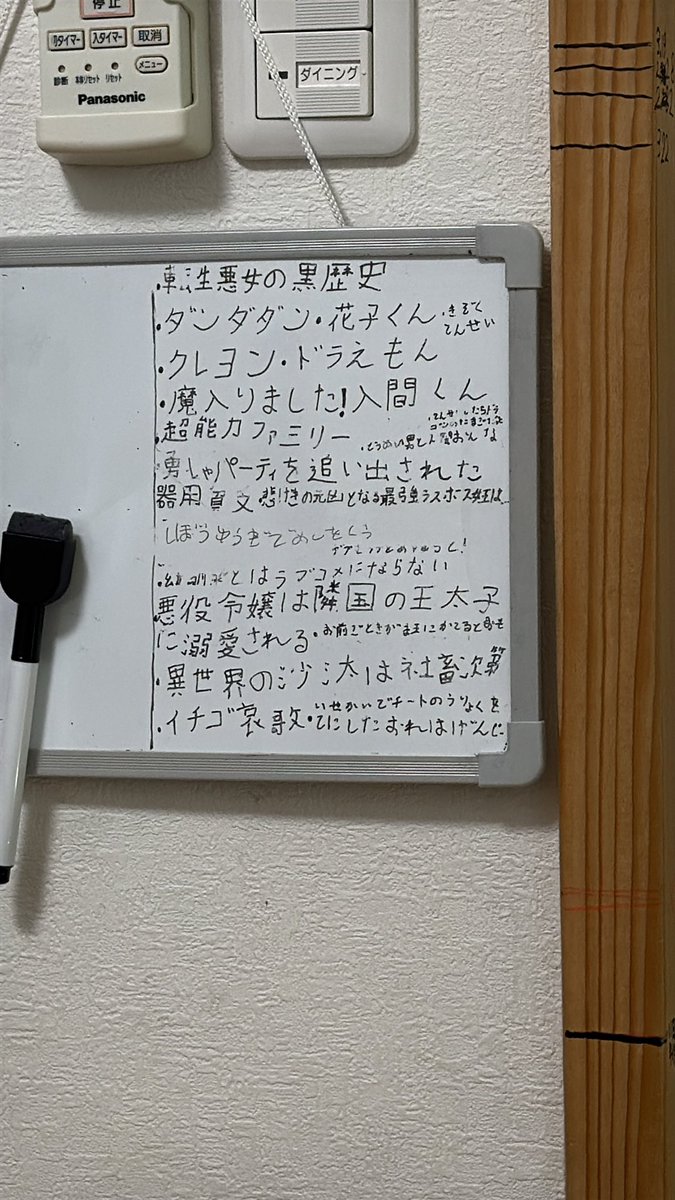 停止
切タイマー 入タイマー 取消
診断 本体リセット リセット メニュー
Panasonic
ダイニング
・転生悪女の黒歴史
・ダンダダン・花子くん ・きぞく
てんせい
・クレヨン・ドラえもん
・魔入りました!入間くん
・超能力ファミリー
・とうめい男と人間おんな
勇しゃパーティを追い出された
器用貧乏 悲げきの元凶となる最強ラスボス女王は…
しぼうゆうぎでめしをくう
とはラブコメにならない
悪役令嬢は隣国の王太子
に溺愛される ・お前ごときが魔王にかてると思も
・異世界の沙汰は社畜次第
・イチゴ哀歌 ・いせかいでチートのうりょくを
てにしたおれはげんじ
322